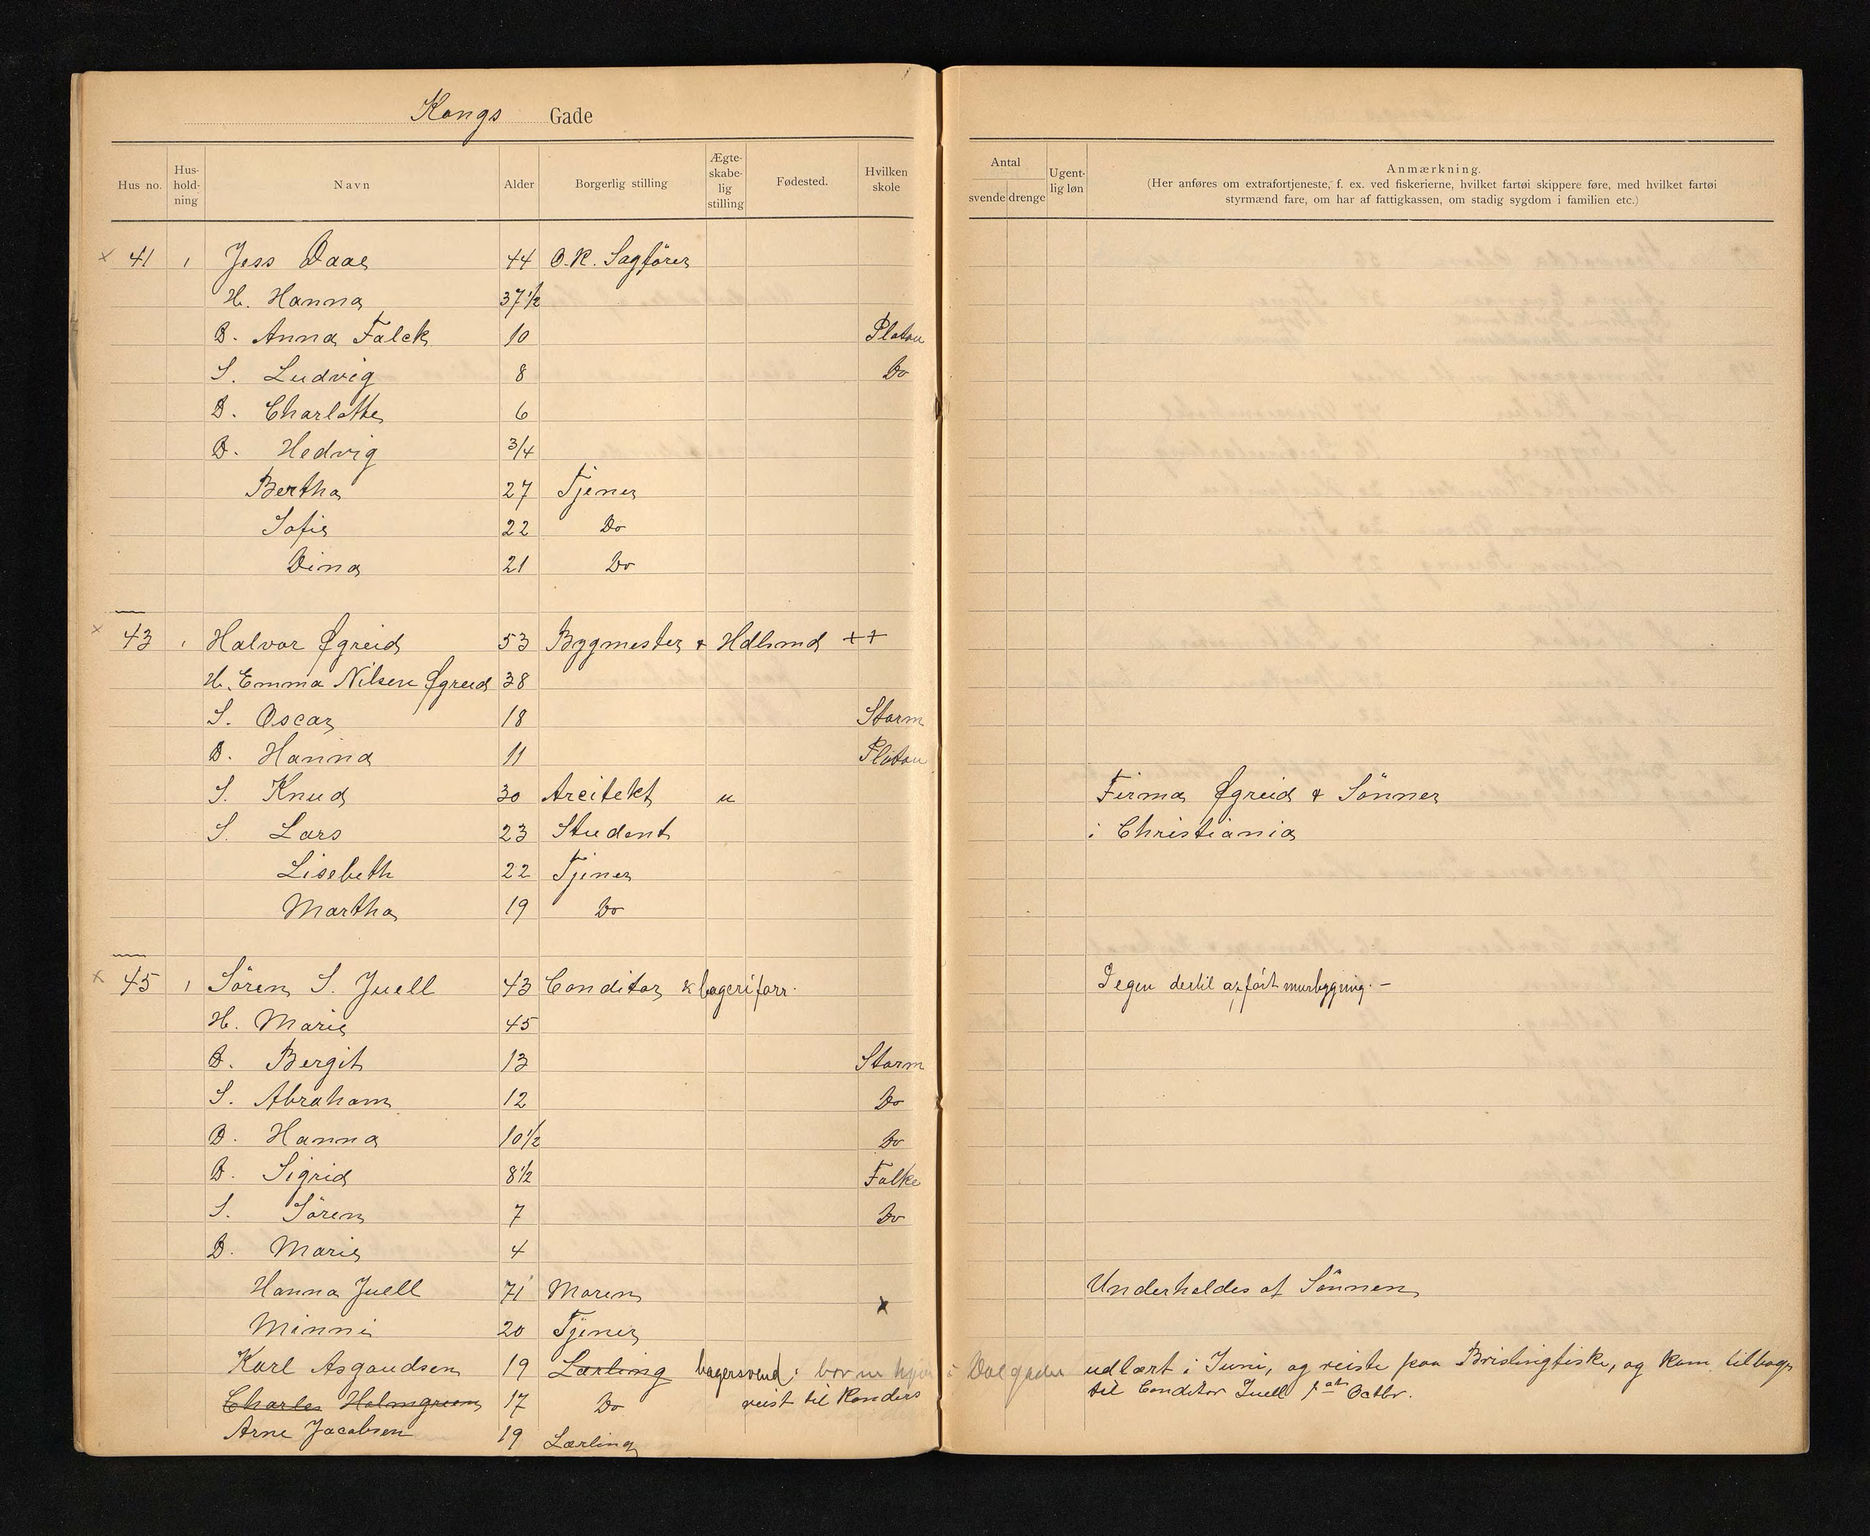 Kongs Gade
Hus no. Hus-hold-ning Navn Alder Borgerlig stilling Ægte-skabe-lig stilling Fødested. Hvilken skole
Antal svende drenge Ugent-lig løn Anmærkning.
(Her anføres om extrafortjeneste, f. ex. ved fiskerierne, hvilket fartøi skippere føre, med hvilket fartøi
styrmænd fare, om har af fattigkassen, om stadig sygdom i familien etc.)
× 41 1 Jess Daae 44 O.R. Sagförer
H. Hanna 37 1/2
D. Anna Falck 10 Platou
S. Ludvig 8 Do
D. Charlotte 6
D. Hedvig 3/4
Bertha 27 Tjener
Sofie 22 Do
Dina 21 Do
× 43 1 Halvor Øgreid 53 Bygmester & Hdlsmd ++
H. Emma Nilsen Øgreid 38
S. Oscar 18 Storm
D. Hanna 11 Platou
S. Knud 30 Arcitekt u Firma Øgreid & Sönner
S. Lars 23 Student i Christiania
Lisebeth 22 Tjener
Martha 19 Do
× 45 1 Sören S. Juell 43 Conditor & bageriforr. I egen dertil opfört murbygning. –
H. Marie 45
D. Bergit 13 Storm
S. Abraham 12 Do
D. Hanna 10 1/2 Do
D. Sigrid 8 1/2 Falke
S. Sören 7 Do
D. Marie 4
Hanna Juell 71 Moren × Underholdes af Sönnen
Minni 20 Tjener
Karl Asgaudsen 19 Lærling bagersvend: bor nu hjem i Dalgaden udlært i Juni, og reiste paa Brislingfiske, og kom tilbage
til Conditor Juell Octbr.
Charles Holmgreen 17 Do reist til Randers
Arne Jacobsen 19 Lærling